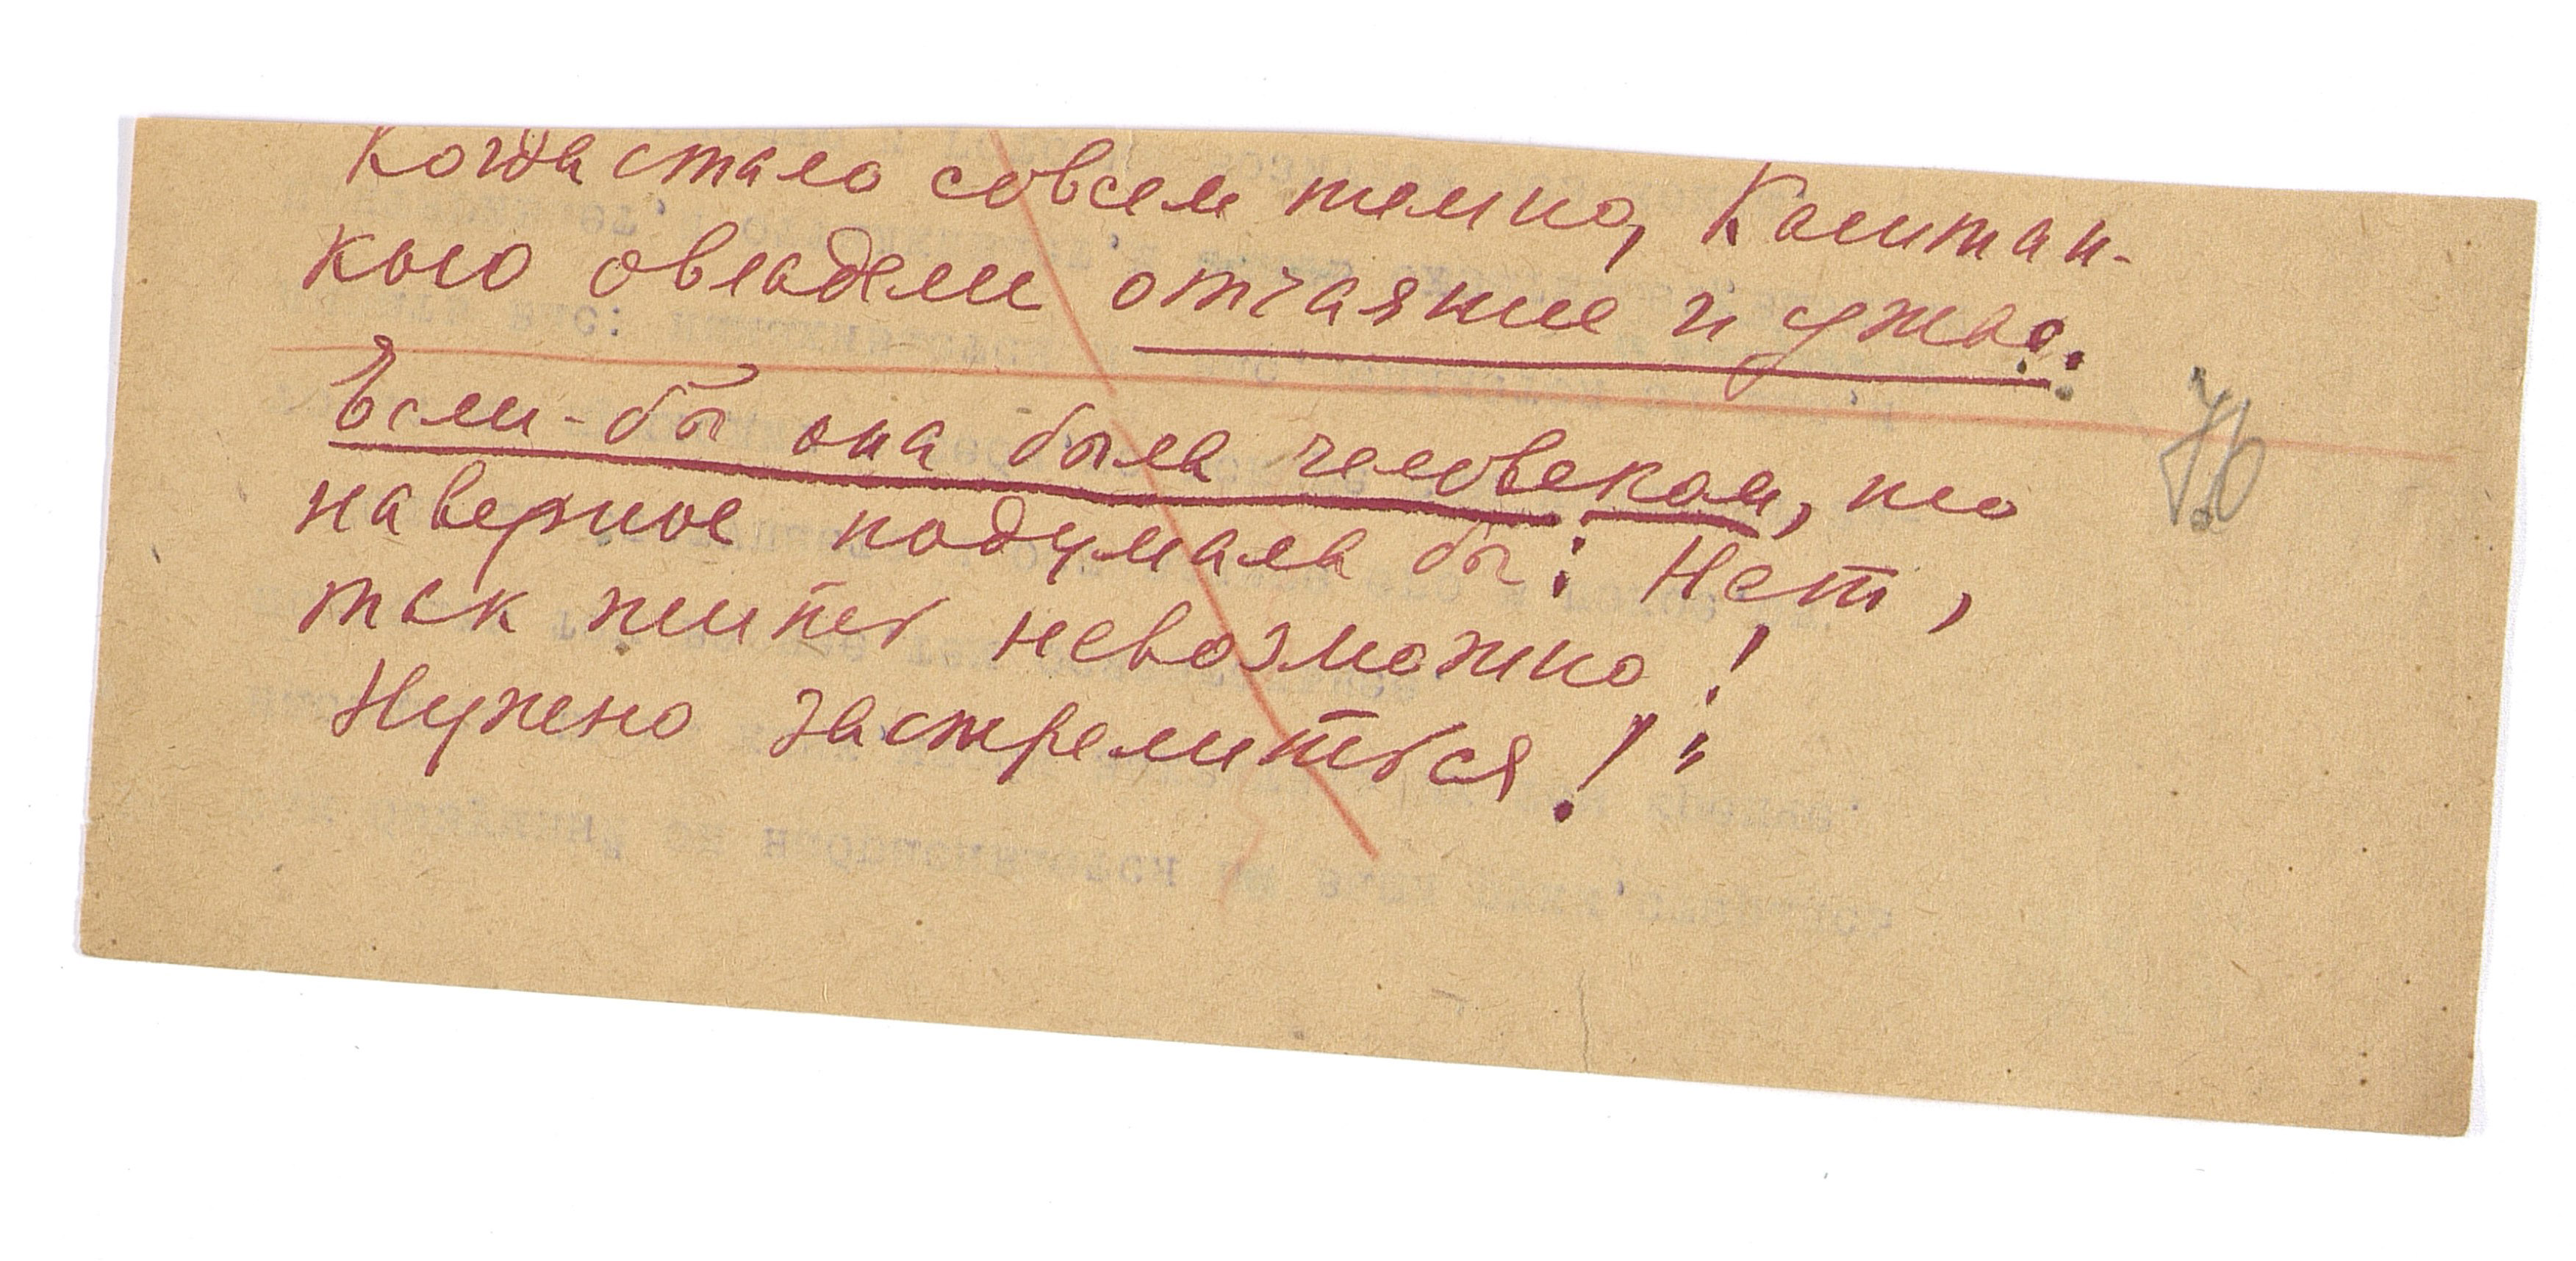 Когда стало совсем темно, Каштан-
кою овладели отчаяние и ужас.
Если-бы она была человеком, то
наверное подумала бы: Нет,
так жить невозможно!
Нужно застрелиться!"